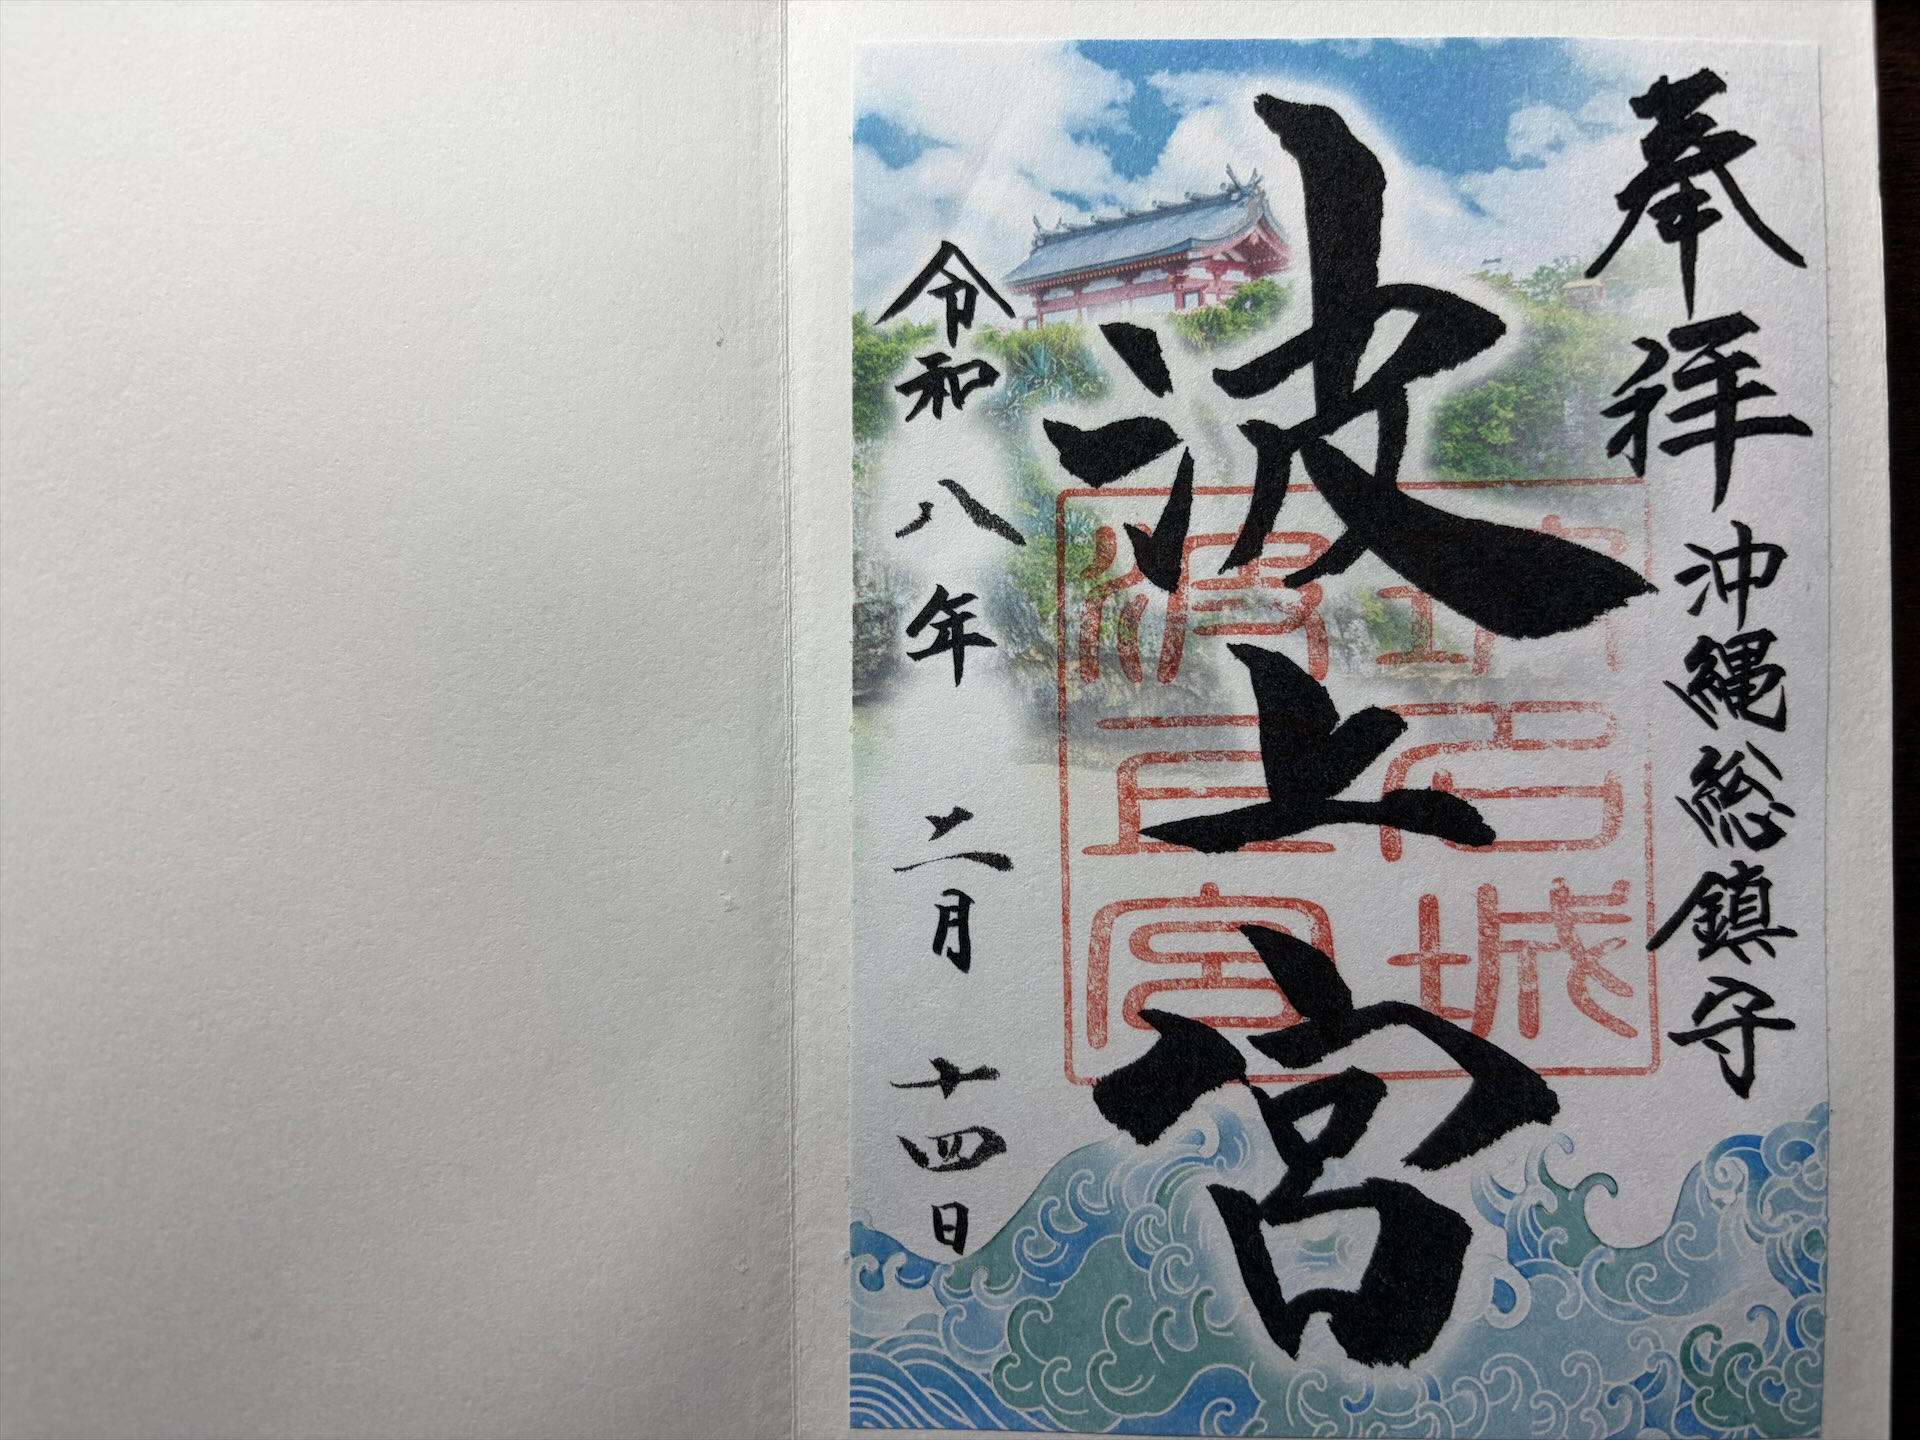 奉拝 沖縄総鎮守
波上宮
波上宮
令和八年 二月 十四日